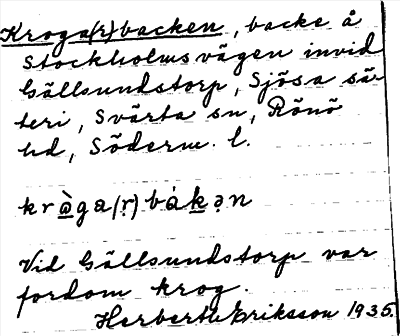 Kroga(r)backen, backe å
Stockholmsvägen invid
Gällsundstorp, Sjösa sä-
teri, Svärta sn, Rönö
hd, Söderm. l.
kràga(r)bákən
Vid Gällsundstorp var
fordom krog.
Herbert Eriksson 1935.